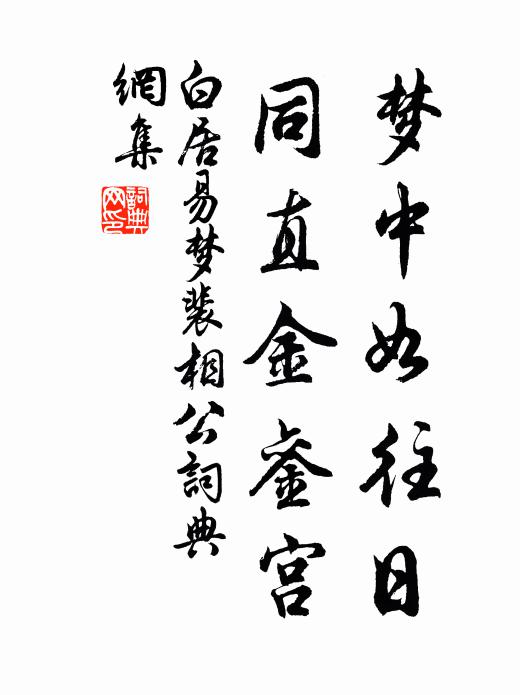 梦中如往日
同直金銮宫
白居易梦裴相公詞典
網集
詞典
网印